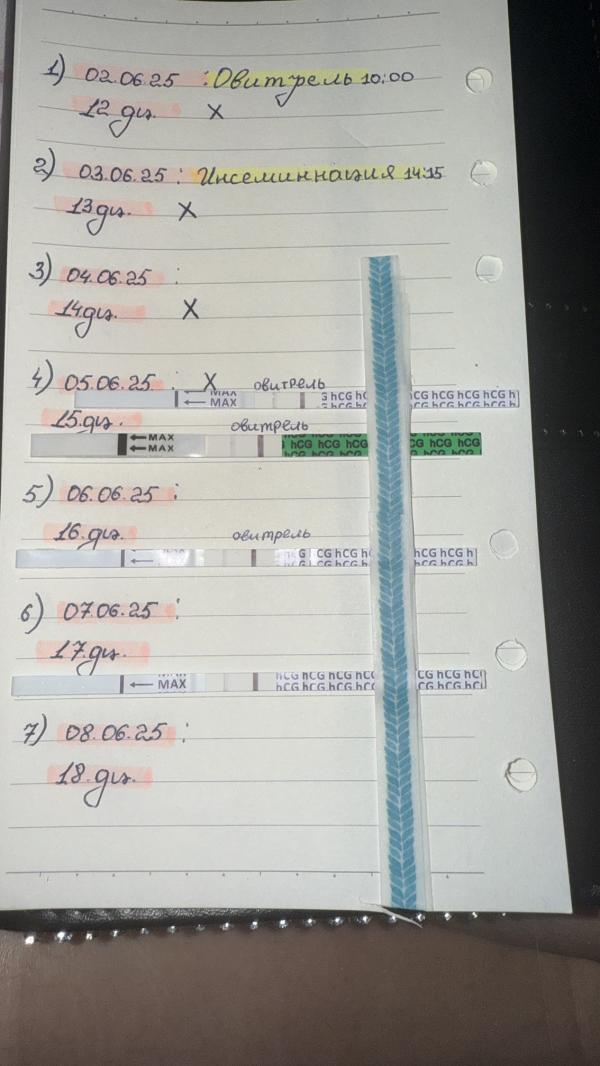 1) 02.06.25 : Овитрель 10:00
12 дц. X
2) 03.06.25 : Инсеминнация 14:15
13 дц. X
3) 04.06.25 :
14 дц. X
4) 05.06.25 : X овитрель
MAX
MAX
hCG hCG hCG hCG h
15 дц. овитрель
MAX
MAX
hCG hCG hCG CG hCG hCG
5) 06.06.25 :
16 дц. овитрель
CG hCG hC hCG hCG h
6) 07.06.25 :
17 дц.
MAX
hCG hCG hCG CG hCG hC
hCG hCG hCG CG hCG hC
7) 08.06.25 :
18 дц.